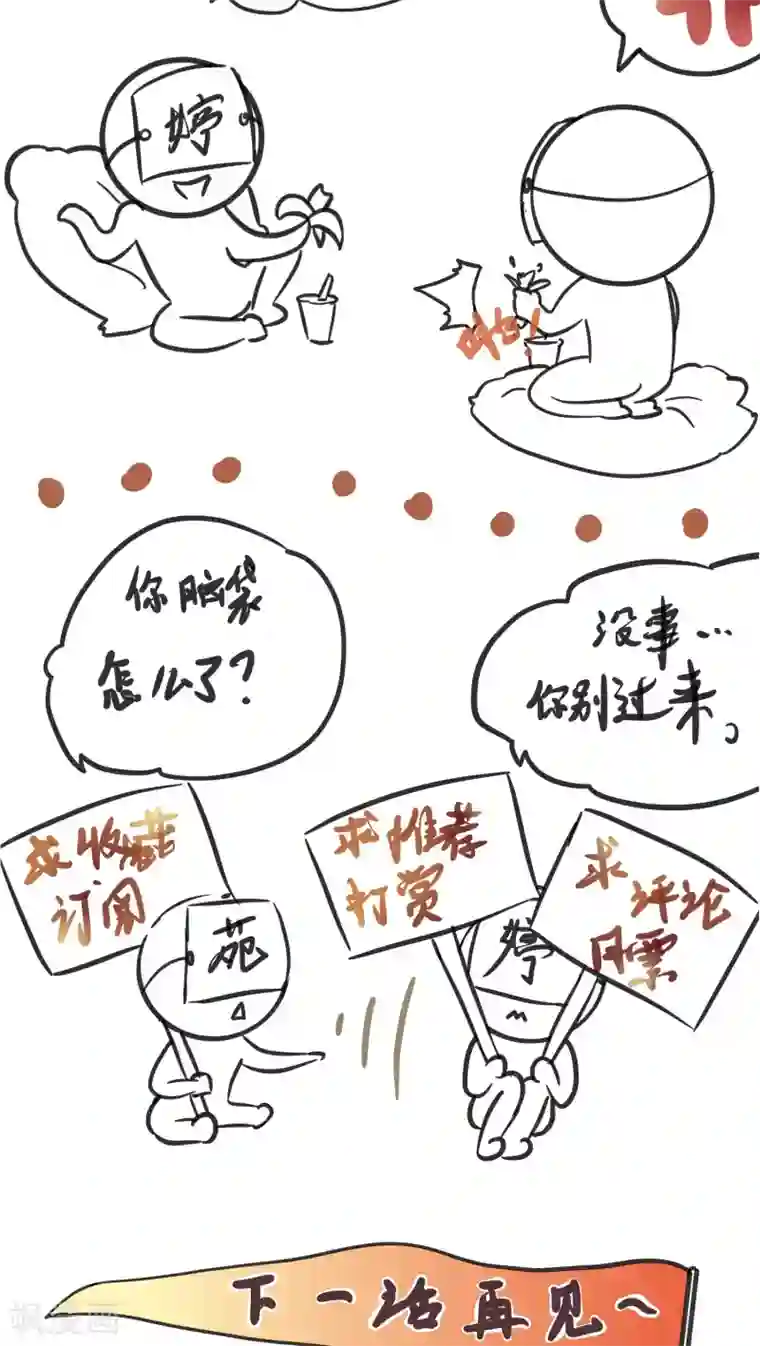 婷
你脑袋
怎么了?
没事...
你别过来。
求收藏
订阅
求推荐
打赏
求评论
月票
苑
婷
下一话再见~
飒漫画